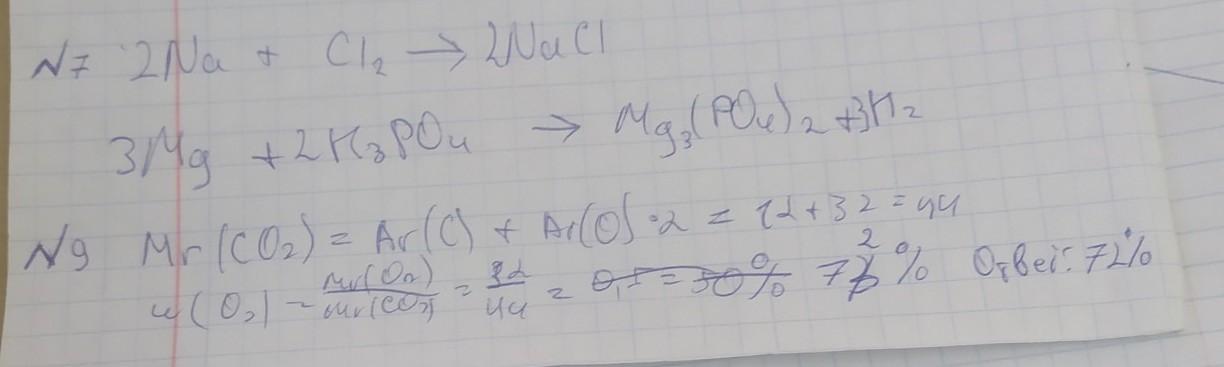 N7 2Na + Cl₂ → 2NaCl
3Mg + 2H₃PO₄ → Mg₃(PO₄)₂ + 3H₂
N9 Mr(CO₂) = Ar(C) + Ar(O)·2 = 12+32=44
w(O₂) = Mr(O₂)/Mr(CO₂) = 32/44 = 72% Ответ: 72%